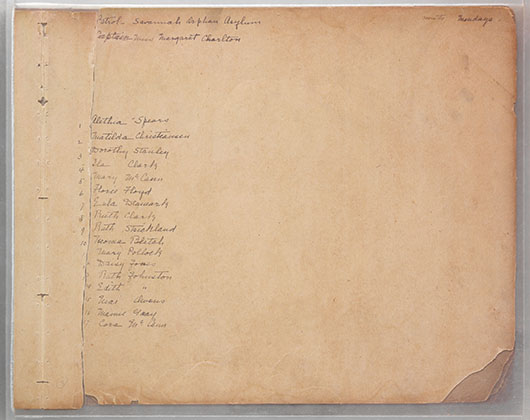 Patrol - Savannah Orphan Asylum meets Mondays
Captain Miss Margaret Charlton
1 Spears
2 Matilda Christiansen
3 Dorothy Stanley
4 Ila Clark
5 Mary McCann
6 Floyd
7 Eula Denmark
8 Ruth Clark
9 Ruth Strickland
10 Thelma
Mary Pollock
Daisy Jones
Ruth Johnston
4 Edith "
5 Owens
16 Mamie Gary
17 Cora McCann